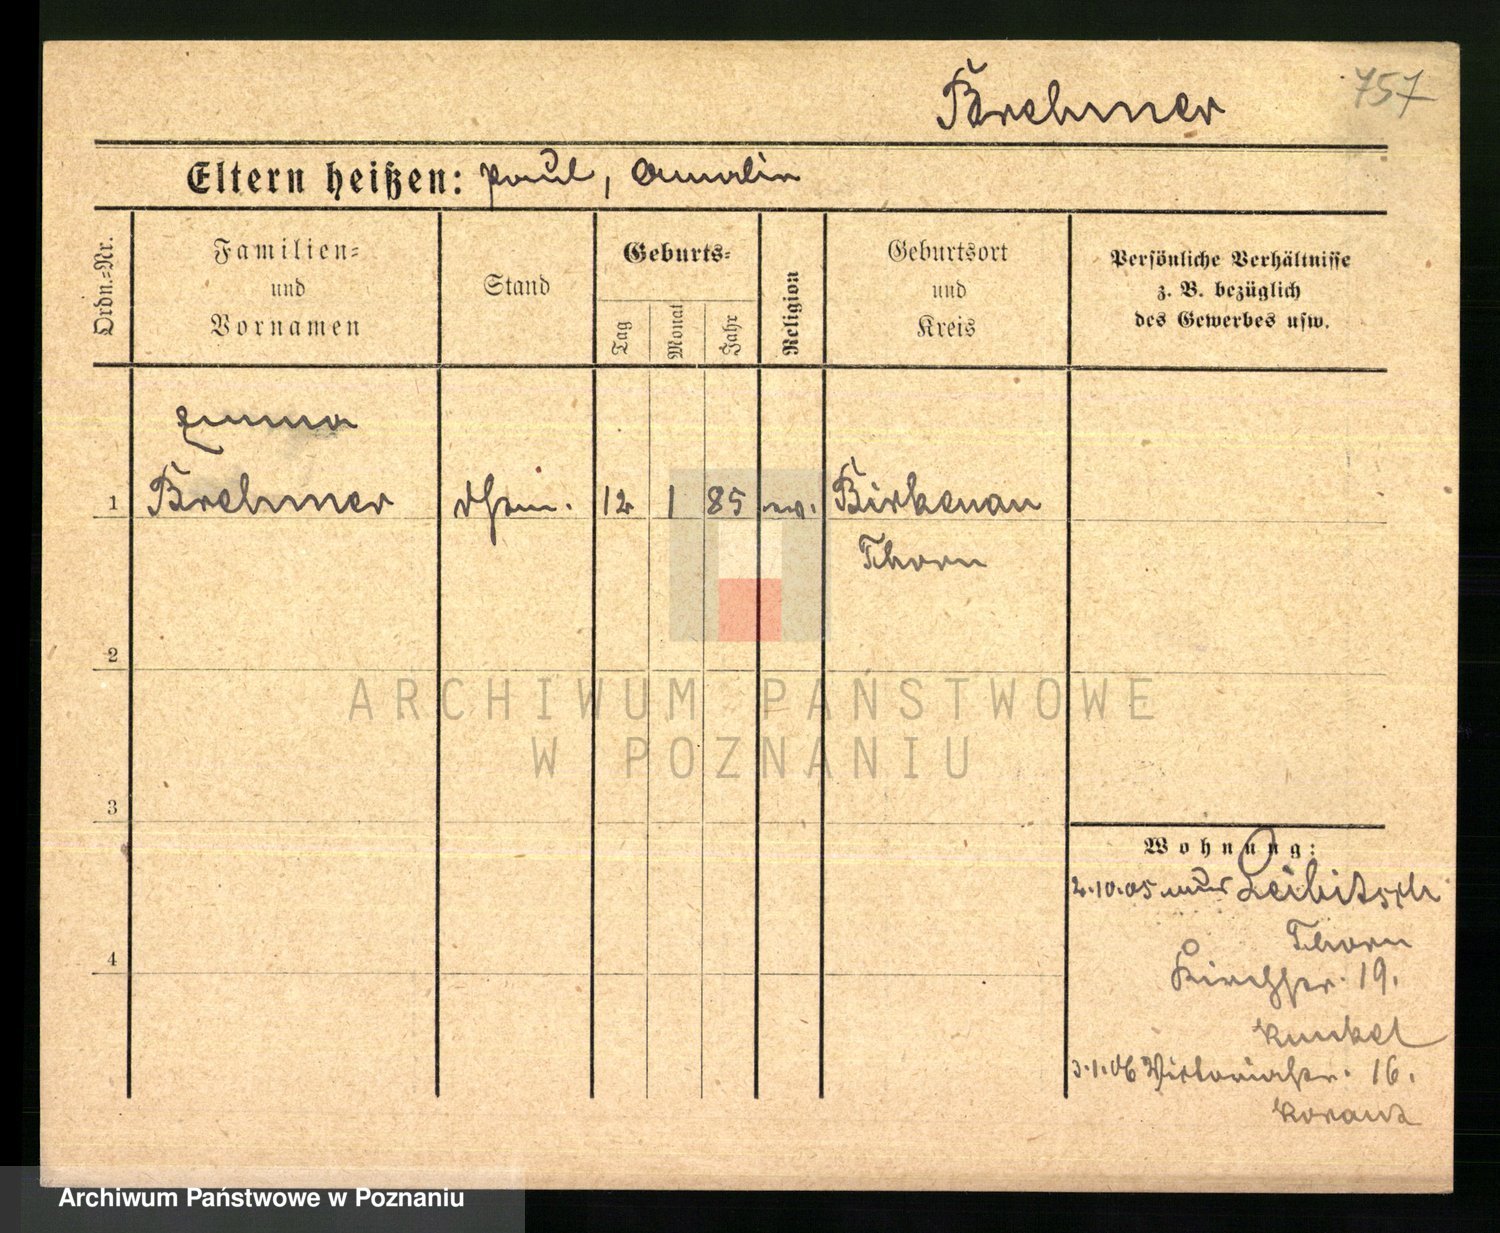 757
Brehmer
Eltern heißen: Paul, Amalie
Ordn.-Nr.
Familien-
und
Vornamen
Stand
Geburts-
Tag
Monat
Jahr
Religion
Geburtsort
und
Kreis
Persönliche Verhältnisse
z. B. bezüglich
des Gewerbes usw.
Emma
1 Brehmer 12 1 85 ev. Birkenau
Thorn
2
3
4
Wohnung:
2.10.05 aus Leibitsch
Thorn
Kirchstr. 19.
Kunkel
3.1.06 Victoriastr. 16.
ARCHIWUM PAŃSTWOWE
W POZNANIU
Archiwum Państwowe w Poznaniu